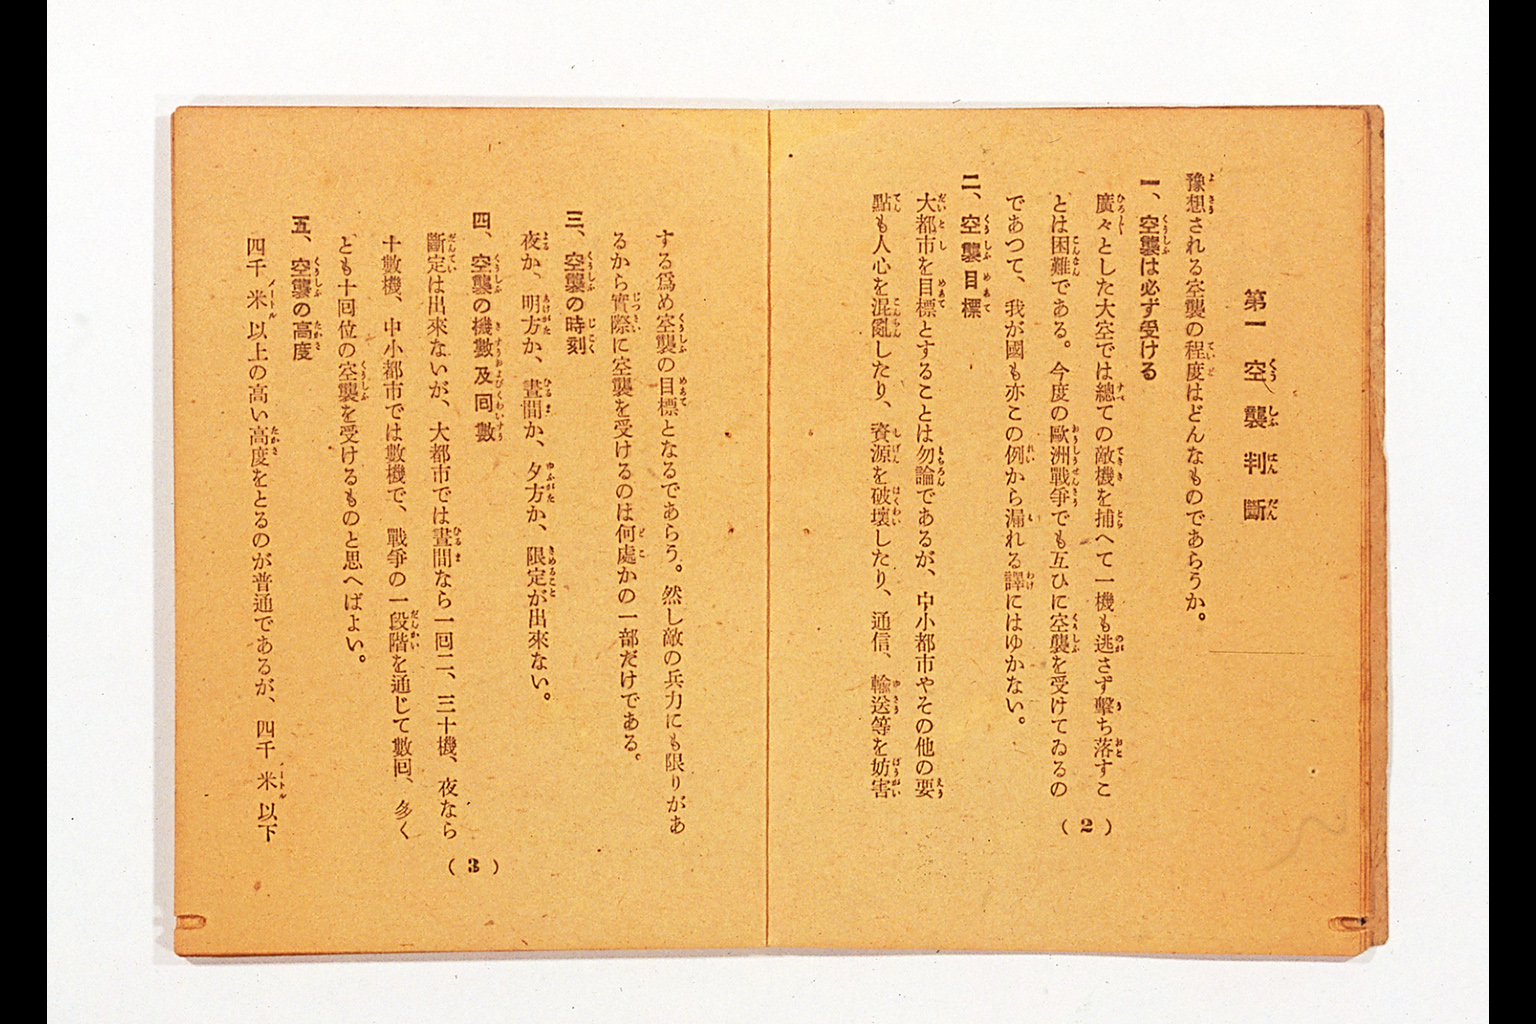 第一　空襲判斷
豫想される空襲の程度はどんなものであらうか。
一、空襲は必ず受ける
廣々とした大空では總ての敵機を捕へて一機も逃さず擊ち落すこ
とは困難である。今度の歐洲戰爭でも互ひに空襲を受けてゐるの
であつて、我が國も亦この例から漏れる譯にはゆかない。
二、空襲目標
大都市を目標とすることは勿論であるが、中小都市やその他の要
點も人心を混亂したり、資源を破壞したり、通信、輸送等を妨害
(2)
する爲め空襲の目標となるであらう。然し敵の兵力にも限りがあ
るから實際に空襲を受けるのは何處かの一部だけである。
三、空襲の時刻
夜か、明方か、晝間か、夕方か、限定が出來ない。
四、空襲の機數及回數
斷定は出來ないが、大都市では晝間なら一回二、三十機、夜なら
十數機、中小都市では數機で、戰爭の一段階を通じて數回、多く
とも十回位の空襲を受けるものと思へばよい。
五、空襲の高度
四千米以上の高い高度をとるのが普通であるが、四千米以下
(3)